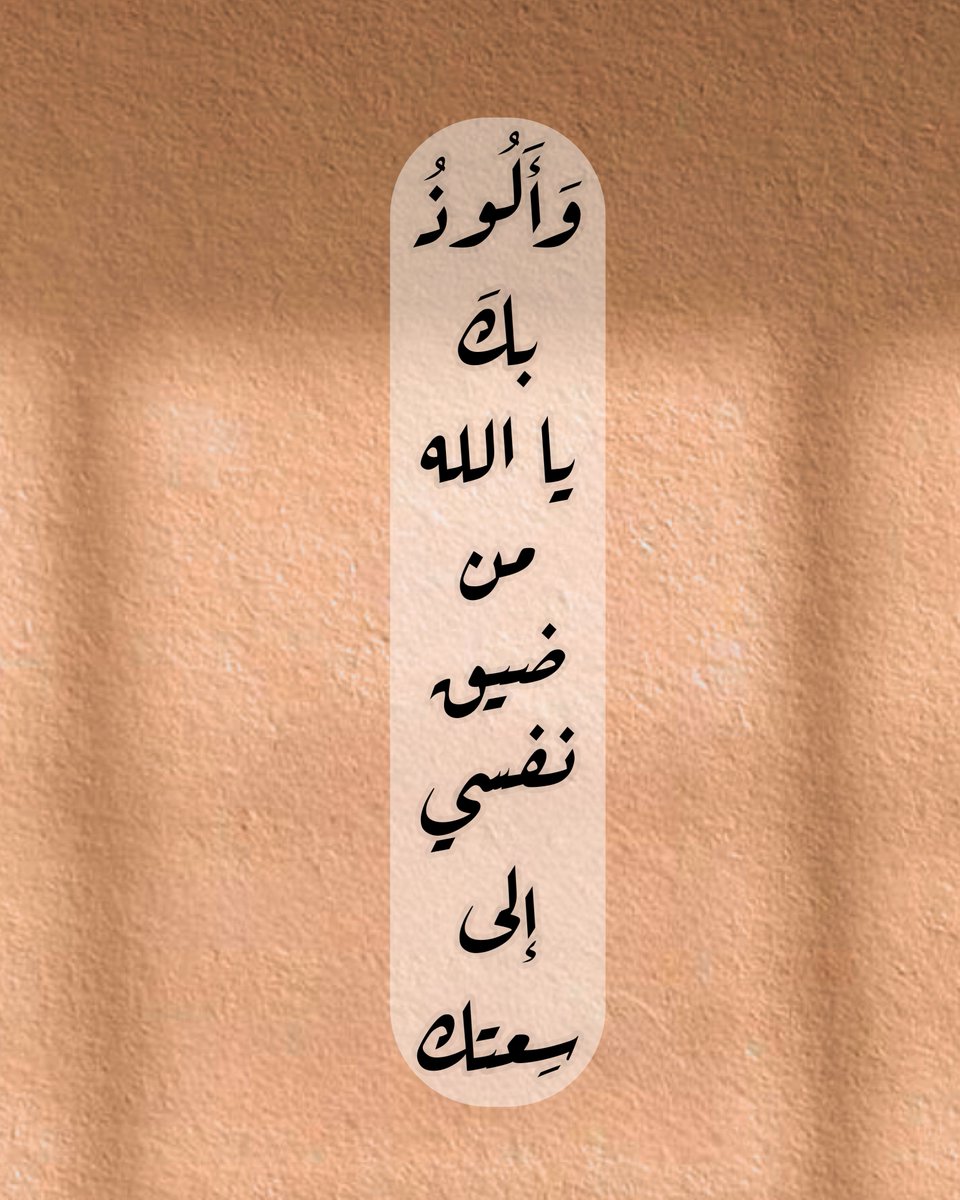 وَأَلُوذُ
بكَ
يا الله
من
ضيق
نفسي
إلى
سِعتك